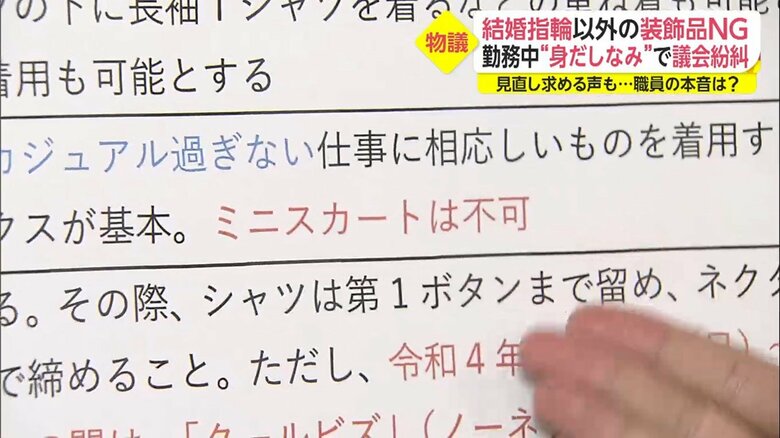 物議
結婚指輪以外の装飾品NG
勤務中“身だしなみ”で議会紛糾
見直し求める声も…職員の本音は？
の下に長袖Tシャツを着るなどの重ね着も可能
着用も可能とする
カジュアル過ぎない仕事に相応しいものを着用す
クスが基本。ミニスカートは不可
る。その際、シャツは第1ボタンまで留め、ネクタ
で締めること。ただし、令和4年
の間は、「クールビズ」（ノーネ